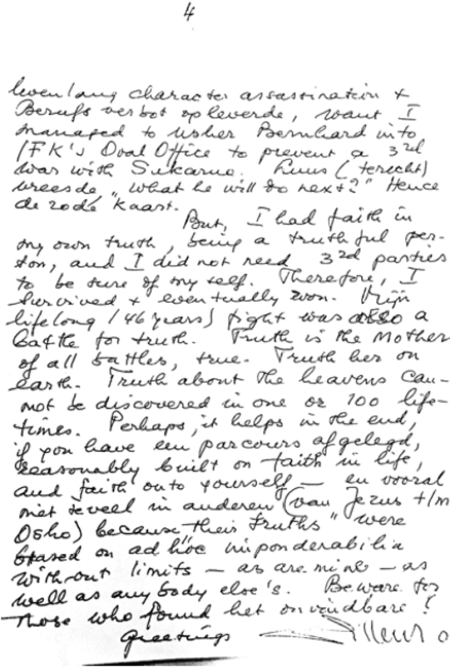 4
levenlang character assassination +
Berufsverbot opleverde, want I
managed to usher Bernhard into
JFK's Oval Office to prevent a 3rd
war with Sukarno. Luns (terecht)
vreesde "what he will do next?" Hence
de rode kaart.
But, I had faith in
my own truth, being a truthful per-
son, and I did not need 3rd parties
to be sure of my self. Therefore, I
survived + eventually won. Mijn
lifelong (46 years) fight was also a
battle for truth. Truth is the Mother
of all battles, true. Truth her on
earth. Truth about the heavens can-
not be discovered in one or 100 life-
times. Perhaps, it helps in the end,
if you have een parcours afgelegd,
reasonably built on faith in life,
and faith onto yourself — en vooral
niet teveel in anderen (van Jezus t/m
Osho) because their "truths" were
based on ad hoc imponderabilia
without limits — as are mine — as
well as any body else's. Beware for
those who found het onvindbare!
Greetings